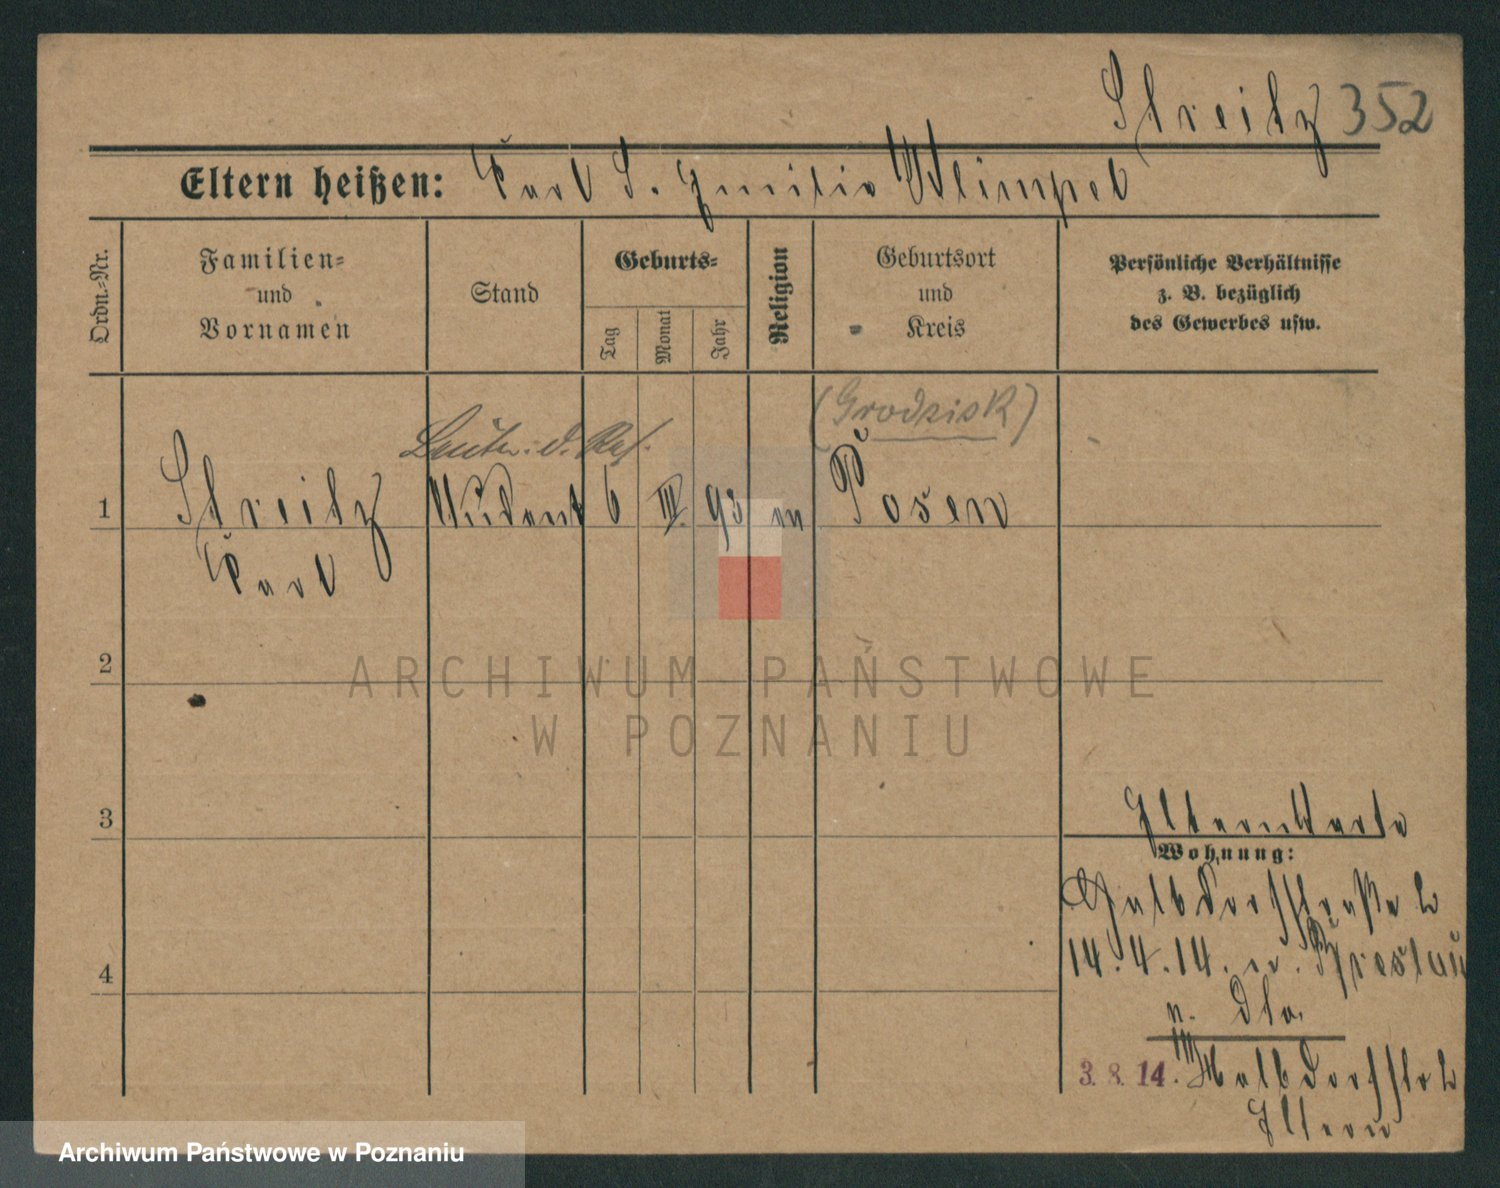 Streitz 352
Eltern heißen: Karl S. Emilie Klimpel
Ordn.-Nr.
Familien-
und
Vornamen
Stand
Geburts-
Tag
Monat
Jahr
Religion
Geburtsort
und
Kreis
Persönliche Verhältnisse
z. B. bezüglich
des Gewerbes usw.
(Grodzisk)
Leutn. d. Res.
1 Streitz Student 6 III. 93 Posen
Karl
2
ARCHIWUM PAŃSTWOWE
W POZNANIU
3
Elternkarte
Wohnung:
Halbdorfstraße
14.4.14. n. Breslau
4
3.8.14. Halbdorfstr
Eltern
Archiwum Państwowe w Poznaniu